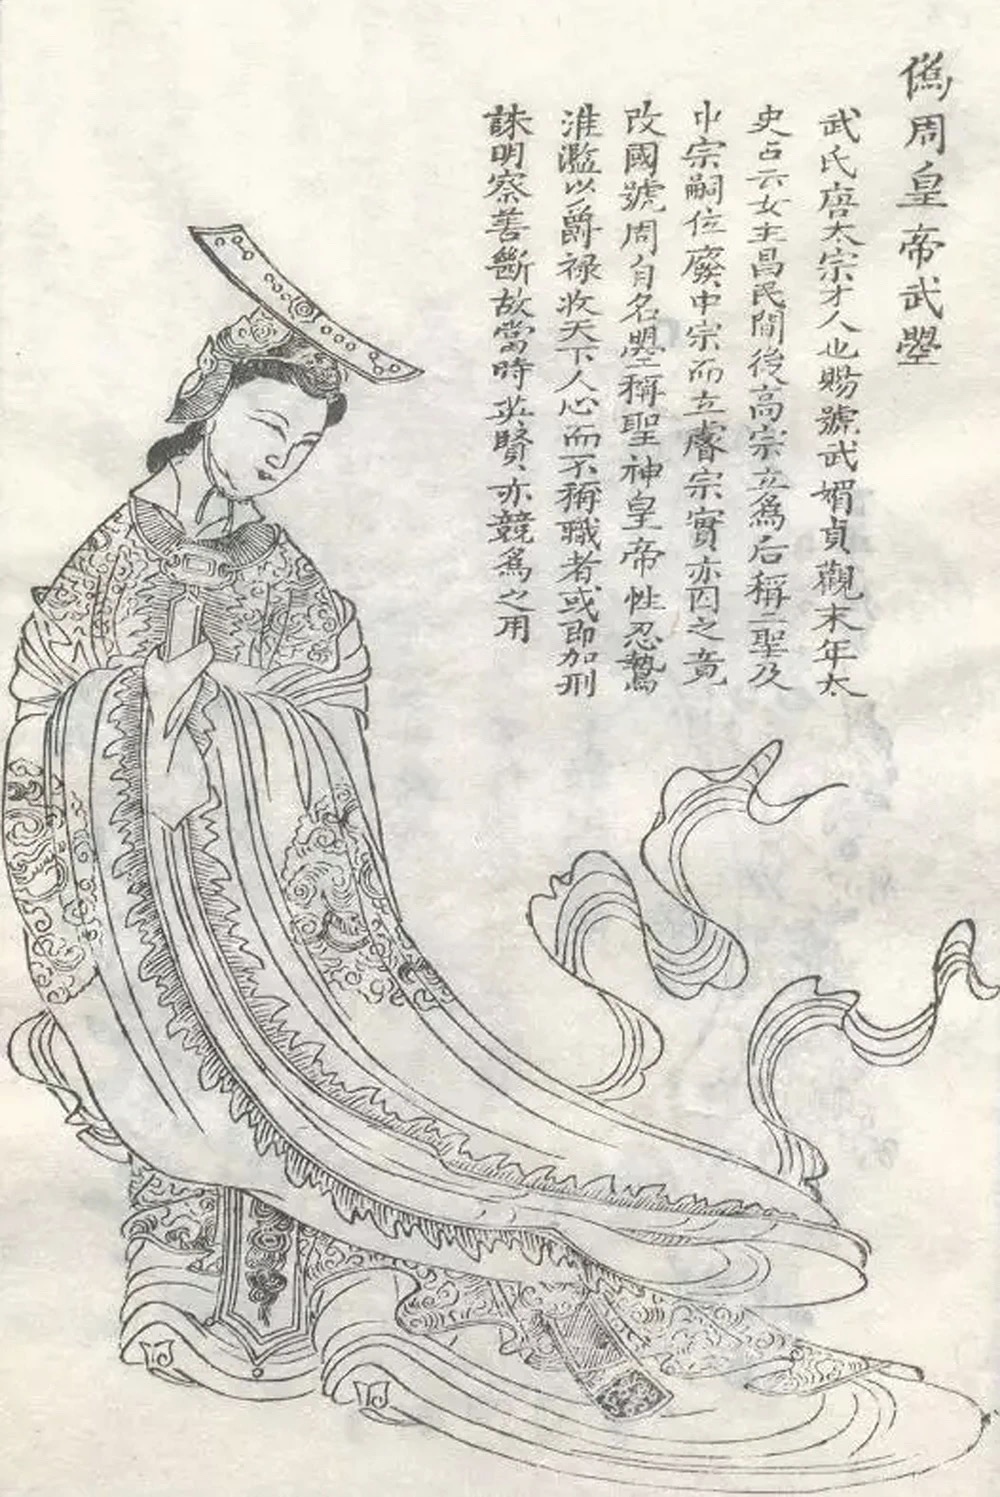 僞周皇帝武曌
武氏唐太宗才人也賜號武媚貞觀末年太
史占云女主昌民間後高宗立為后稱二聖及
中宗嗣位廢中宗而立睿宗實亦囚之竟
改國號周自名曌稱聖神皇帝性忍鷙
淮濫以爵祿收天下人心而不稱職者或即加刑
誅明察善斷故當時英賢亦競為之用